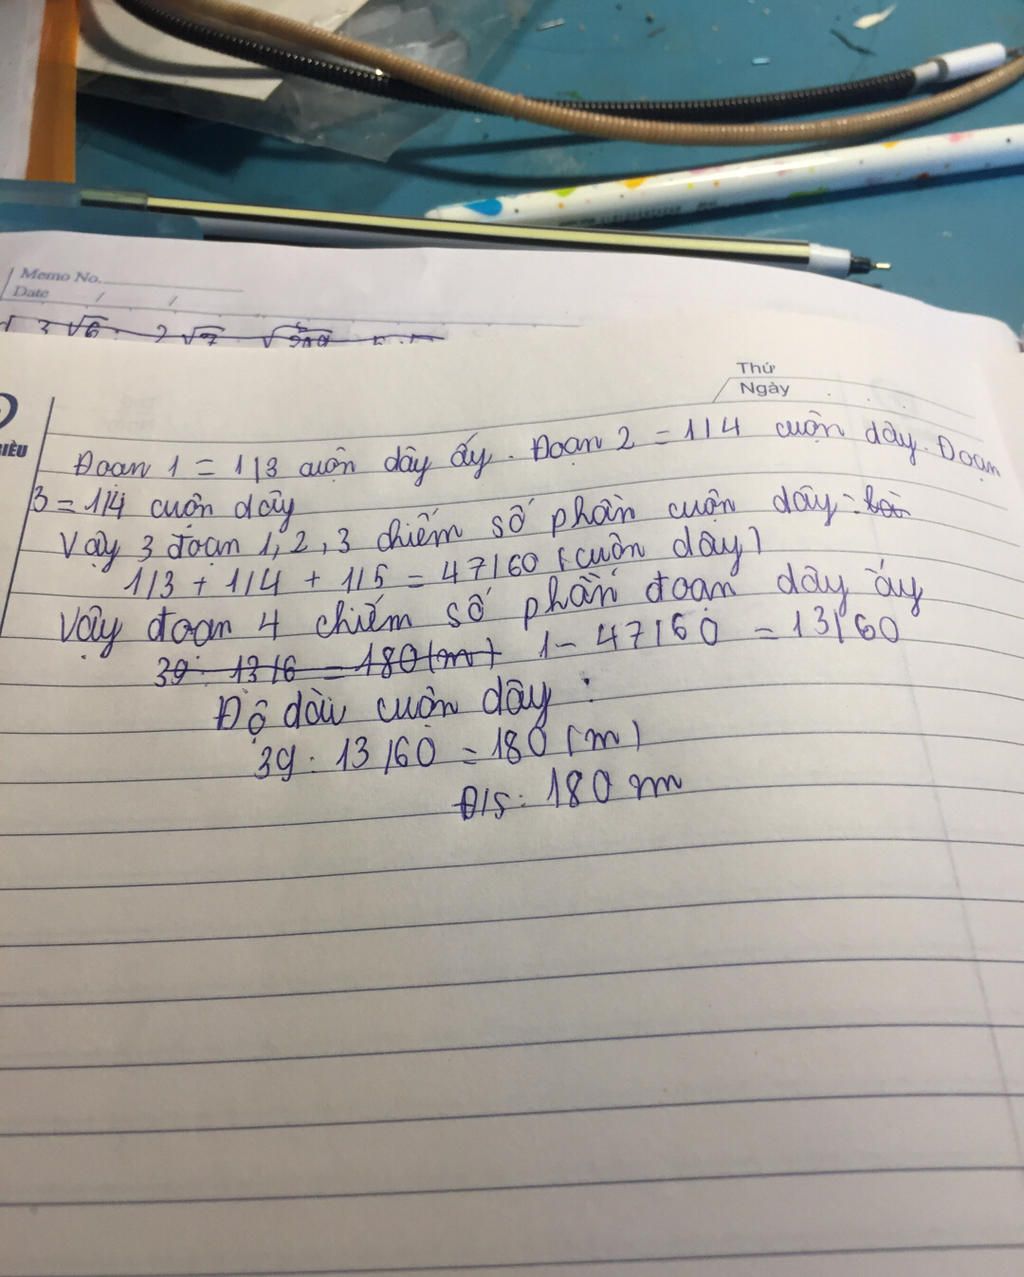 Memo No.
Date / /
3√6 2√7
Thứ
Ngày
IỀU
Đoạn 1 = 1/3 cuộn dây ấy. Đoạn 2 = 1/4 cuộn dây. Đoạn
3 = 1/4 cuộn dây
Vậy 3 đoạn 1, 2, 3 chiếm số phần cuộn dây:
1/3 + 1/4 + 1/5 = 47/60 (cuộn dây)
Vậy đoạn 4 chiếm số phần đoạn dây ấy
39: 13/6 = 180 (m) 1 - 47/60 = 13/60
Độ dài cuộn dây:
39: 13/60 = 180 (m)
Đ/S: 180 m